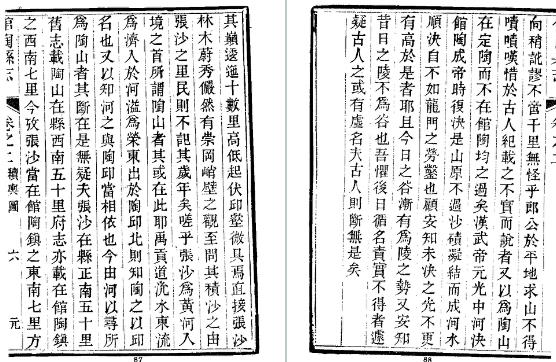 其巔逶迤十數里高低起伏邱壑微具焉直接張沙
林木蔚秀儼然有崇岡峭壁之觀至問其積沙之由
張沙之里民則不記其歲年矣嗟乎張沙為黃河入
境之首所謂陶山者其或在此耶禹貢道沇水東流
為濟入於河溢為滎東出於陶邱北則知陶之以邱
名也又以知河之與陶邱當相依也今由河以尋所
為陶山者其斷在是無疑夫張沙在縣正南五十里
舊志載陶山在縣西南五十里府志亦載在館陶鎮
之西南七里今攷張沙當在館陶鎮之東南七里方
館陶縣志 卷之二 續輿圖 六 元
87
向稍訛謬不當千里無怪乎郎公於平地求山不得
嘖嘖嘆惜於古人紀載之不實而說者又以為陶山
在定陶而不在館陶均之過矣漢武帝元光中河決
館陶成帝時復決是山原不過沙積凝結而成河水
順決自不如龍門之勞鑿也顧安知未決之先不更
有高於是者耶且今日之谷漸有為陵之勢又安知
昔日之陵不為谷也吾懼後日循名責實不得者遽
疑古人之或有虛名夫古人則斷無是矣
88